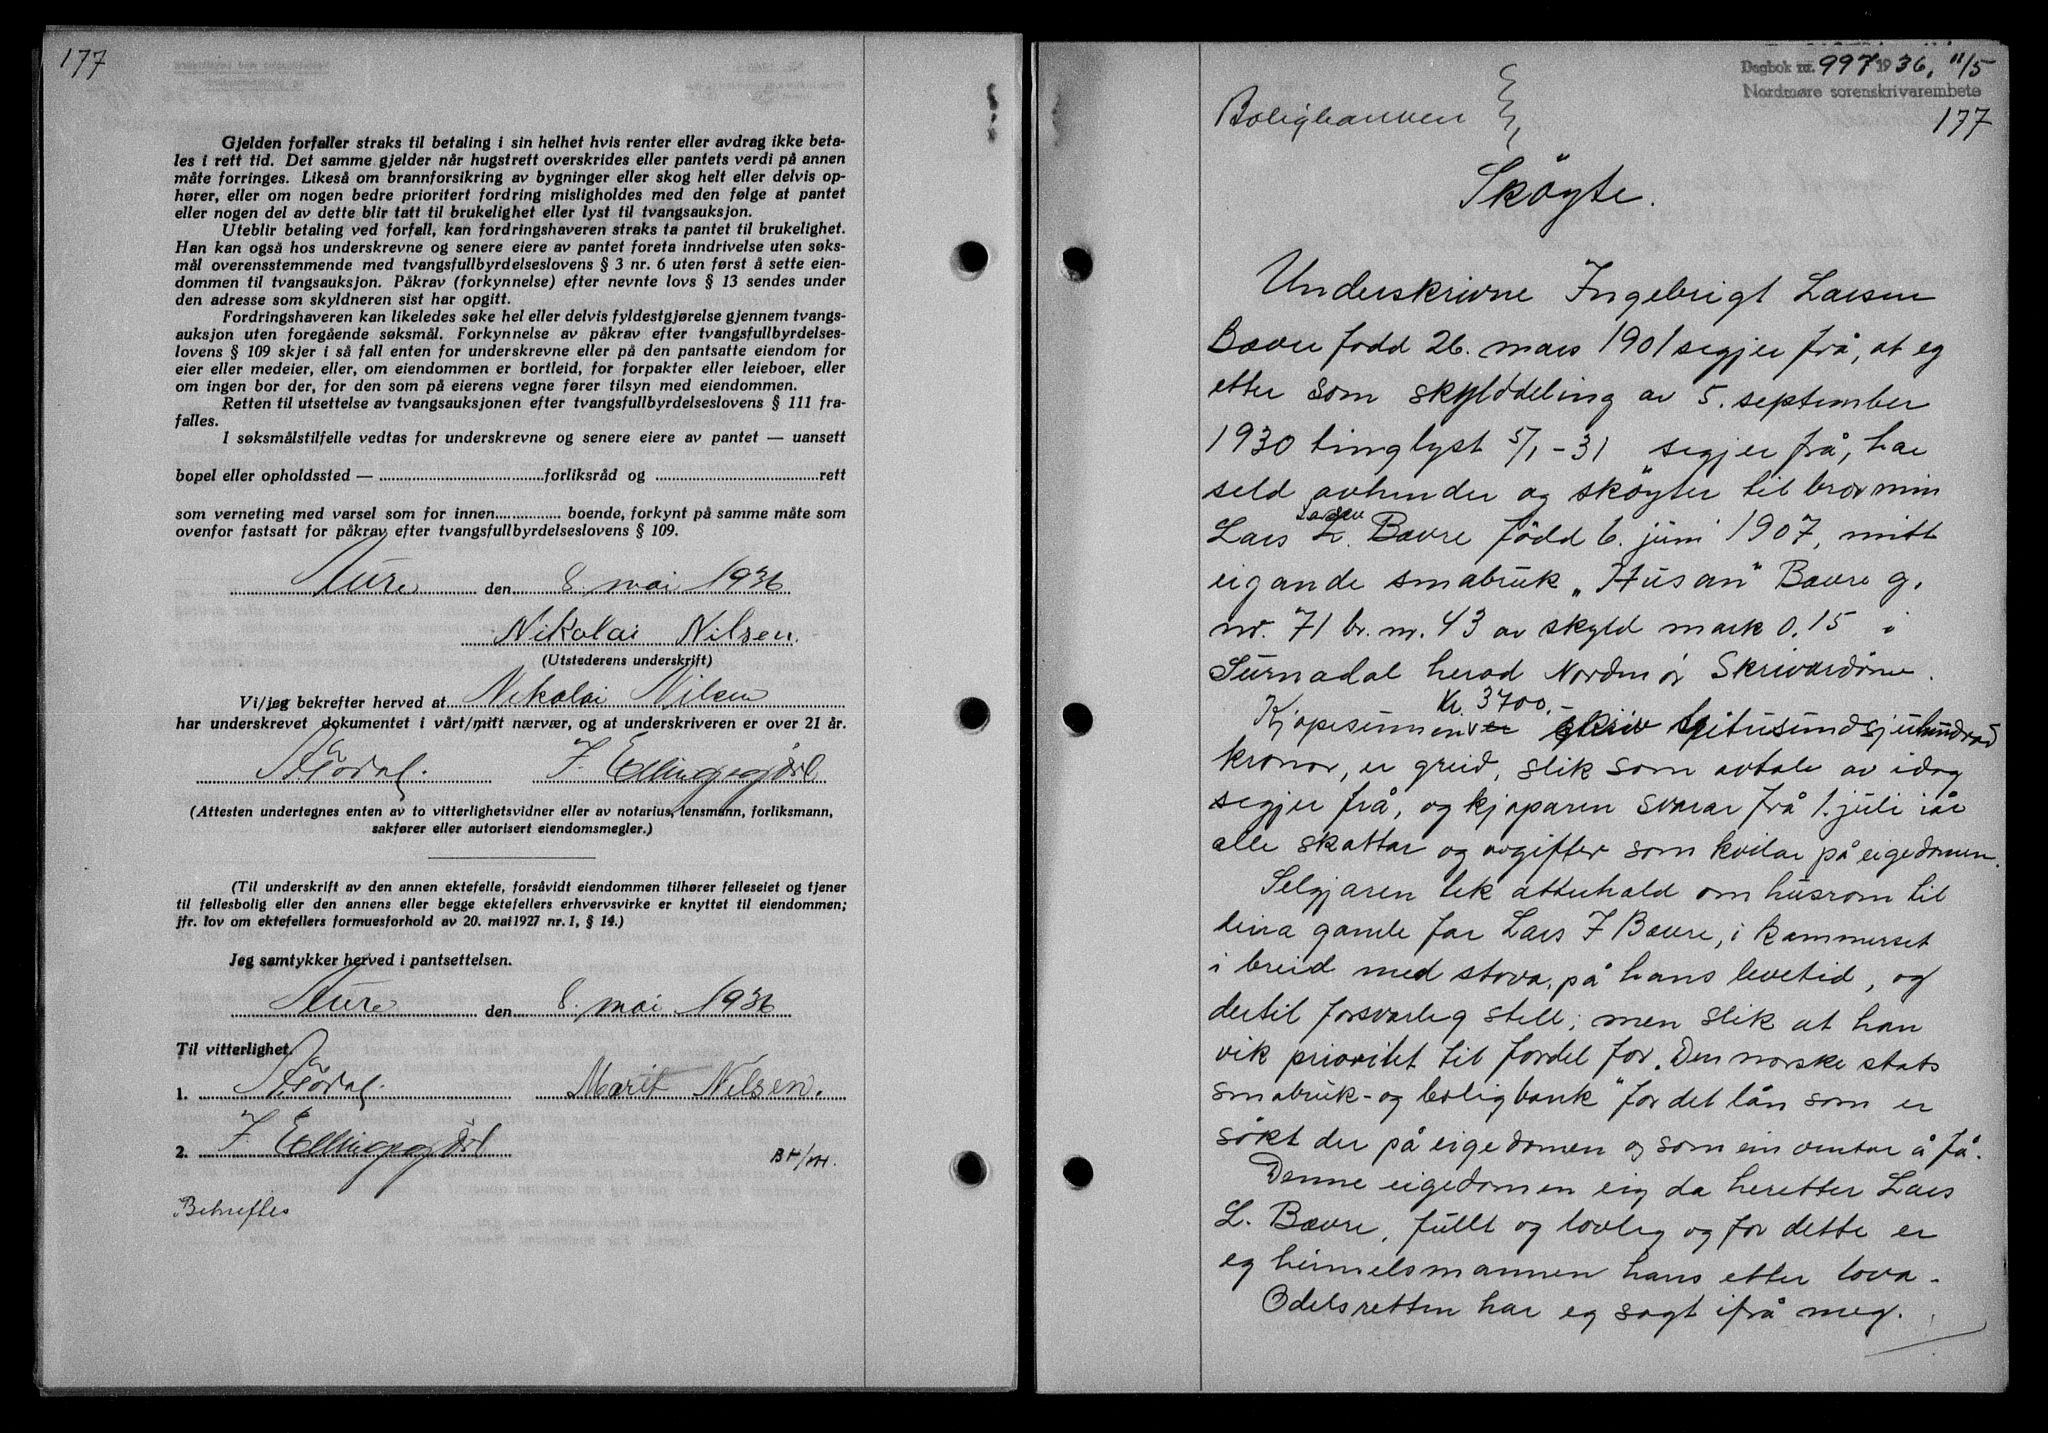 177
Gjelden forfaller straks til betaling i sin helhet hvis renter eller avdrag ikke beta-
les i rett tid. Det samme gjelder når hugstrett overskrides eller pantets verdi på annen
måte forringes. Likeså om brannforsikring av bygninger eller skog helt eller delvis op-
hører, eller om nogen bedre prioritert fordring misligholdes med den følge at pantet
eller nogen del av dette blir tatt til brukelighet eller lyst til tvangsauksjon.
Uteblir betaling ved forfall, kan fordringshaveren straks ta pantet til brukelighet.
Han kan også hos underskrevne og senere eiere av pantet foreta inndrivelse uten søks-
mål overensstemmende med tvangsfullbyrdelseslovens § 3 nr. 6 uten først å sette eien-
dommen til tvangsauksjon. Påkrav (forkynnelse) efter nevnte lovs § 13 sendes under
den adresse som skyldneren sist har opgitt.
Fordringshaveren kan likeledes søke hel eller delvis fyldestgjørelse gjennem tvangs-
auksjon uten foregående søksmål. Forkynnelse av påkrav efter tvangsfullbyrdelses-
lovens § 109 skjer i så fall enten for underskrevne eller på den pantsatte eiendom for
eier eller medeier, eller, om eiendommen er bortleid, for forpakter eller leieboer, eller
om ingen bor der, for den som på eierens vegne fører tilsyn med eiendommen.
Retten til utsettelse av tvangsauksjonen efter tvangsfullbyrdelseslovens § 111 fra-
falles.
I søksmålstilfelle vedtas for underskrevne og senere eiere av pantet — uansett
bopel eller opholdssted — forliksråd og rett
som verneting med varsel som for innen boende, forkynt på samme måte som
ovenfor fastsatt for påkrav efter tvangsfullbyrdelseslovens § 109.
Aure den 8. mai 1936
Nikolai Nilsen.
(Utstederens underskrift)
Vi/jeg bekrefter herved at Nikolai Nilsen
har underskrevet dokumentet i vårt/mitt nærvær, og at underskriveren er over 21 år.
J. Ellingsgjerl
(Attesten undertegnes enten av to vitterlighetsvidner eller av notarius, lensmann, forliksmann,
sakfører eller autorisert eiendomsmegler.)
(Til underskrift av den annen ektefelle, forsåvidt eiendommen tilhører felleseiet og tjener
til fellesbolig eller den annens eller begge ektefellers erhvervsvirke er knyttet til eiendommen;
jfr. lov om ektefellers formuesforhold av 20. mai 1927 nr. 1, § 14.)
Jeg samtykker herved i pantsettelsen.
Aure den 8. mai 1936
Til vitterlighet.
1. Marit Nilsen.
2. BH/M.
Bekreftes
Dagbok nr. 997 1936, 11/5
Nordmøre sorenskrivarembete
177
Boligbanken
Skøyte.
Underskrivne Ingebrigt Larsen
Bævre fødd 26. mars 1901 segjer frå, at eg
etter som skylddeling av 5. september
1930 tinglyst 5/1-31 segjer frå, har
seld avhender og skøyter til bror min
Larsen
Lars L. Bævre fødd 6. juni 1907, mitt
eigande småbruk „Husan" Bævre g.
nr. 71 br. nr. 43 av skyld mark 0.15 i
Surnadal herad Nordmør Skrivardøme.
Kr. 3700.-
Kjøpesummen skriv tritusundsjuhundrad
kronor, er greid, slik som avtale av idag
segjer frå, og kjøparen svarar frå 1. juli iår
alle skattar og avgifter som kvilar på eigedomen.
Selgjaren tek atterhald om husrom til
gamle far Lars I Bævre, i kammerset
i breid med stova, på hans levetid, og
dertil forsvarleg stell; men slik at han
vik prioritet til fordel for „Den norske stats
småbruk- og boligbank" for det lån som er
søkt der på eigedomen og som ein ventar å få.
Denne eigedomen eig da heretter Lars
L. Bævre, fullt og lovleg og for dette er
eg heimelsmannen hans etter lova.
Odelsretten har eg sagt ifrå meg.